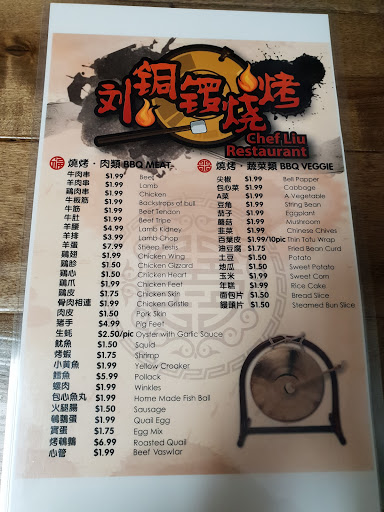 刘铜锣烧烤
Chef Liu
Restaurant
燒烤・肉類 BBQ MEAT
牛肉串 $1.99 Beef
羊肉串 $1.99 Lamb
鷄肉串 $1.99 Chicken
牛板筋 $1.99 Backstraps of bull
牛筋 $1.99 Beef Tendon
牛肚 $1.99 Beef Tripe
羊腰 $4.99 Lamb Kidney
羊排 $3.99 Lamb Chop
羊蛋 $7.99 Sheep Testis
鷄翅 $1.50 Chicken Wing
鷄胗 $1.50 Chicken Gizzard
鷄心 $1.50 Chicken Heart
鷄爪 $1.99 Chicken Feet
鷄皮 $1.75 Chicken Skin
骨肉相連 $1.99 Chicken Gristle
肉皮 $1.50 Pork Skin
猪手 $4.99 Pig Feet
生蚝 $2.50/pic Oyster with Garlic Sauce
魷魚 $1.50 Squid
烤蝦 $1.75 Shrimp
小黃魚 $1.99 Yellow Croaker
鱈魚 $5.99 Pollack
螺肉 $1.99 Winkles
包心魚丸 $1.99 Home Made Fish Ball
火腿腸 $1.50 Sausage
鵪鶉蛋 $1.99 Quail Egg
實蛋 $1.75 Egg Mix
烤鵪鶉 $6.99 Roasted Quail
心管 $1.99 Beef Vaswlar
燒烤・蔬菜類 BBQ VEGGIE
尖椒 $1.99 Bell Papper
包心菜 $1.99 Cabbage
A菜 $1.99 A Vegetable
豆角 $1.99 String Bean
茄子 $1.99 Eggplant
蘑菇 $1.99 Mushroom
韭菜 $1.99 Chinese Chives
百葉皮 $1.99/10pic Thin Tofu Wrap
油豆腐 $1.75 Fried Bean Curd
土豆 $1.50 Potato
地瓜 $1.50 Sweet Potato
玉米 $1.99 Sweet Corn
年糕 $1.99 Rice Cake
面包片 $1.50 Bread Slice
饅頭片 $1.50 Steamed Bun Slice